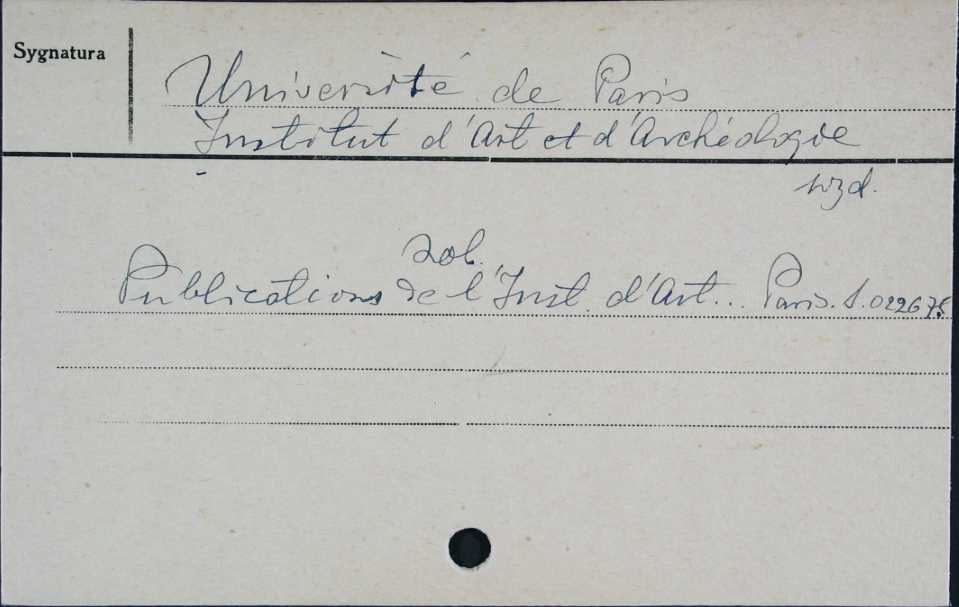 Sygnatura
Université de Paris
Institut d'Art et d'Archéologie
wyd.
zob.
Publications de l'Inst. d'Art... Paris. S.022675